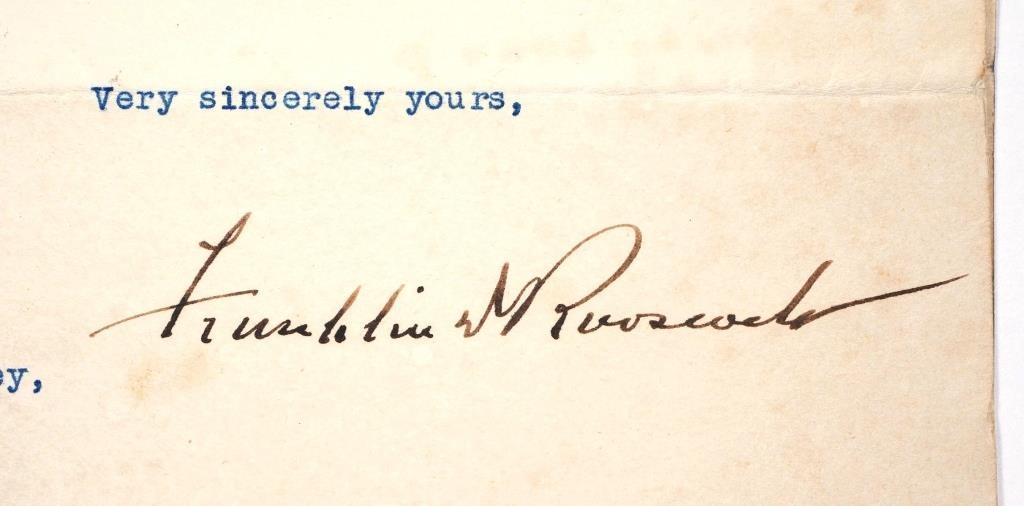 Very sincerely yours,
Franklin D Roosevelt
ey,